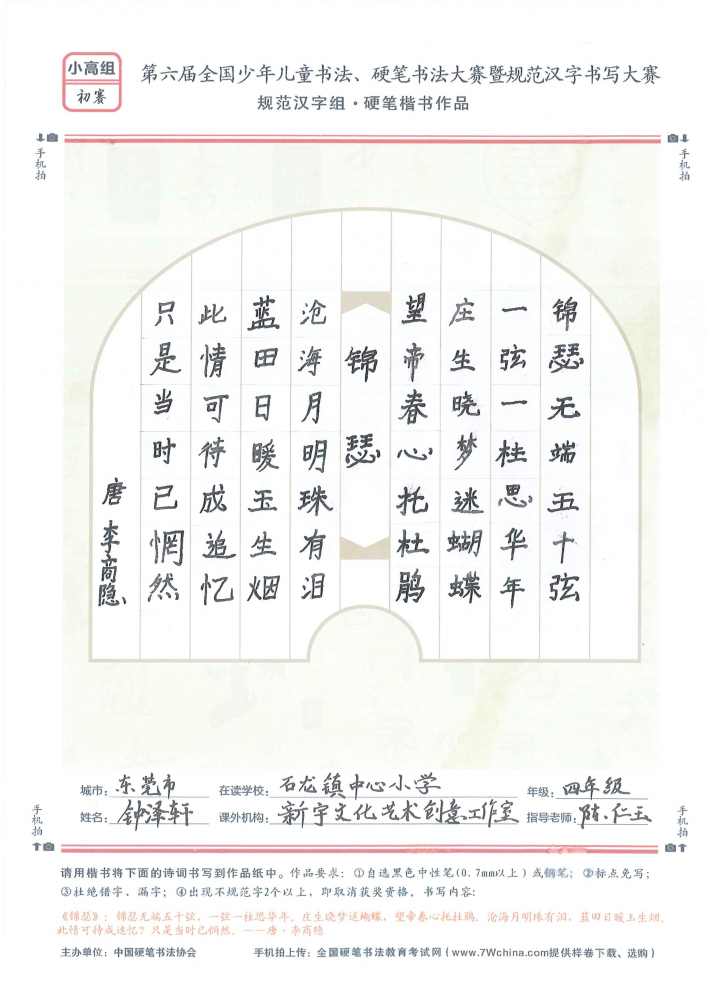 小高组
初赛
第六届全国少年儿童书法、硬笔书法大赛暨规范汉字书写大赛
规范汉字组·硬笔楷书作品
手机拍
手机拍
锦瑟无端五十弦
一弦一柱思华年
庄生晓梦迷蝴蝶
望帝春心托杜鹃
锦瑟
沧海月明珠有泪
蓝田日暖玉生烟
此情可待成追忆
只是当时已惘然
唐 李商隐
城市：东莞市 在读学校：石龙镇中心小学 年级：四年级
姓名：钟泽轩 课外机构：新宇文化艺术创意工作室 指导老师：陈仁玉
手机拍
手机拍
请用楷书将下面的诗词书写到作品纸中。作品要求：①自选黑色中性笔(0.7mm以上）或钢笔；②标点免写；
③杜绝错字、漏字；④出现不规范字2个以上，即取消获奖资格。书写内容：
《锦瑟》：锦瑟无端五十弦，一弦一柱思华年。庄生晓梦迷蝴蝶，望帝春心托杜鹃。沧海月明珠有泪，蓝田日暖玉生烟。
此情可待成追忆？只是当时已惘然。——唐·李商隐
主办单位：中国硬笔书法协会 手机拍上传：全国硬笔书法教育考试网（www.7Wchina.com提供样卷下载、选购）